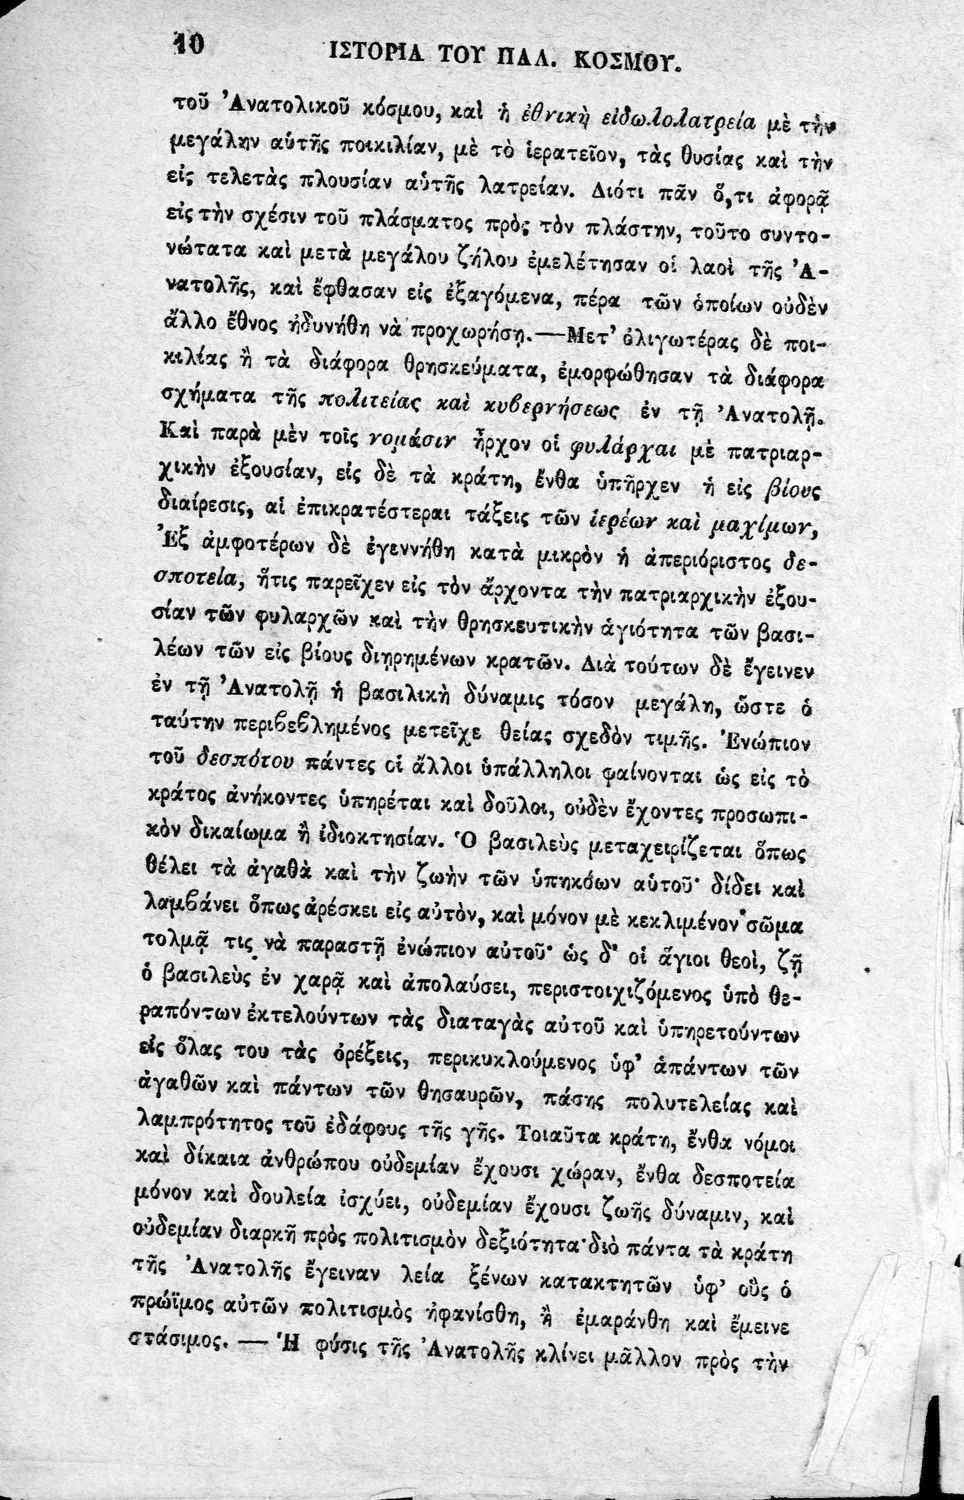 10
ΙΣΤΟΡΙΑ ΤΟΥ ΠΑΛ. ΚΟΣΜΟΥ.
τοῦ Ἀνατολικοῦ κόσμου, καὶ ἡ ἐθνικὴ εἰδωλολατρεία μὲ τὴν
μεγάλην αὑτῆς ποικιλίαν, μὲ τὸ ἱερατεῖον, τὰς θυσίας καὶ τὴν
εἰς τελετὰς πλουσίαν αὑτῆς λατρείαν. Διότι πᾶν ὅ,τι ἀφορᾷ
εἰς τὴν σχέσιν τοῦ πλάσματος πρὸς τὸν πλάστην, τοῦτο συντο-
νώτατα καὶ μετὰ μεγάλου ζήλου ἐμελέτησαν οἱ λαοὶ τῆς Ἀ-
νατολῆς, καὶ ἔφθασαν εἰς ἐξαγόμενα, πέρα τῶν ὁποίων οὐδὲν
ἄλλο ἔθνος ἠδυνήθη νὰ προχωρήσῃ.—Μετ' ὀλιγωτέρας δὲ ποι-
κιλίας ἢ τὰ διάφορα θρησκεύματα, ἐμορφώθησαν τὰ διάφορα
σχήματα τῆς πολιτείας καὶ κυβερνήσεως ἐν τῇ Ἀνατολῇ.
Καὶ παρὰ μὲν τοῖς νομάσιν ἦρχον οἱ φυλάρχαι μὲ πατριαρ-
χικὴν ἐξουσίαν, εἰς δὲ τὰ κράτη, ἔνθα ὑπῆρχεν ἡ εἰς βίους
διαίρεσις, αἱ ἐπικρατέστεραι τάξεις τῶν ἱερέων καὶ μαχίμων,
Ἐξ ἀμφοτέρων δὲ ἐγεννήθη κατὰ μικρὸν ἡ ἀπεριόριστος δε-
σποτεία, ἥτις παρεῖχεν εἰς τὸν ἄρχοντα τὴν πατριαρχικὴν ἐξου-
σίαν τῶν φυλαρχῶν καὶ τὴν θρησκευτικὴν ἁγιότητα τῶν βασι-
λέων τῶν εἰς βίους διῃρημένων κρατῶν. Διὰ τούτων δὲ ἔγεινεν
ἐν τῇ Ἀνατολῇ ἡ βασιλικὴ δύναμις τόσον μεγάλη, ὥστε ὁ
ταύτην περιβεβλημένος μετεῖχε θείας σχεδὸν τιμῆς. Ἐνώπιον
τοῦ δεσπότου πάντες οἱ ἄλλοι ὑπάλληλοι φαίνονται ὡς εἰς τὸ
κράτος ἀνήκοντες ὑπηρέται καὶ δοῦλοι, οὐδὲν ἔχοντες προσωπι-
κὸν δικαίωμα ἢ ἰδιοκτησίαν. Ὁ βασιλεὺς μεταχειρίζεται ὅπως
θέλει τὰ ἀγαθὰ καὶ τὴν ζωὴν τῶν ὑπηκόων αὑτοῦ· δίδει καὶ
λαμβάνει ὅπως ἀρέσκει εἰς αὐτὸν, καὶ μόνον μὲ κεκλιμένον σῶμα
τολμᾷ τις νὰ παραστῇ ἐνώπιον αὐτοῦ· ὡς δ' οἱ ἅγιοι θεοὶ, ζῇ
ὁ βασιλεὺς ἐν χαρᾷ καὶ ἀπολαύσει, περιστοιχιζόμενος ὑπὸ θε-
ραπόντων ἐκτελούντων τὰς διαταγὰς αὐτοῦ καὶ ὑπηρετούντων
εἰς ὅλας του τὰς ὀρέξεις, περικυκλούμενος ὑφ' ἁπάντων τῶν
ἀγαθῶν καὶ πάντων τῶν θησαυρῶν, πάσης πολυτελείας καὶ
λαμπρότητος τοῦ ἐδάφους τῆς γῆς. Τοιαῦτα κράτη, ἔνθα νόμοι
καὶ δίκαια ἀνθρώπου οὐδεμίαν ἔχουσι χώραν, ἔνθα δεσποτεία
μόνον καὶ δουλεία ἰσχύει, οὐδεμίαν ἔχουσι ζωῆς δύναμιν, καὶ
οὐδεμίαν διαρκῆ πρὸς πολιτισμὸν δεξιότητα· διὸ πάντα τὰ κράτη
τῆς Ἀνατολῆς ἔγειναν λεία ξένων κατακτητῶν ὑφ' οὓς ὁ
πρώϊμος αὐτῶν πολιτισμὸς ἠφανίσθη, ἢ ἐμαράνθη καὶ ἔμεινε
στάσιμος. — Ἡ φύσις τῆς Ἀνατολῆς κλίνει μᾶλλον πρὸς τὴν